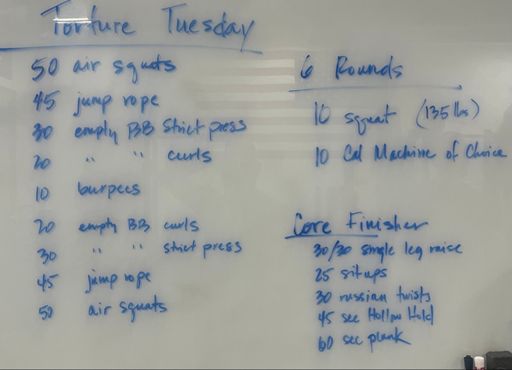 Torture Tuesday
50 air squats
45 jump rope
30 empty BB Strict press
20 " " curls
10 burpees
20 empty BB curls
30 " " strict press
45 jump rope
50 air squats
6 Rounds
10 squat (135 lbs)
10 Cal Machine of Choice
Core Finisher
30/30 single leg raise
25 situps
30 russian twists
45 sec Hollow Hold
60 sec plank